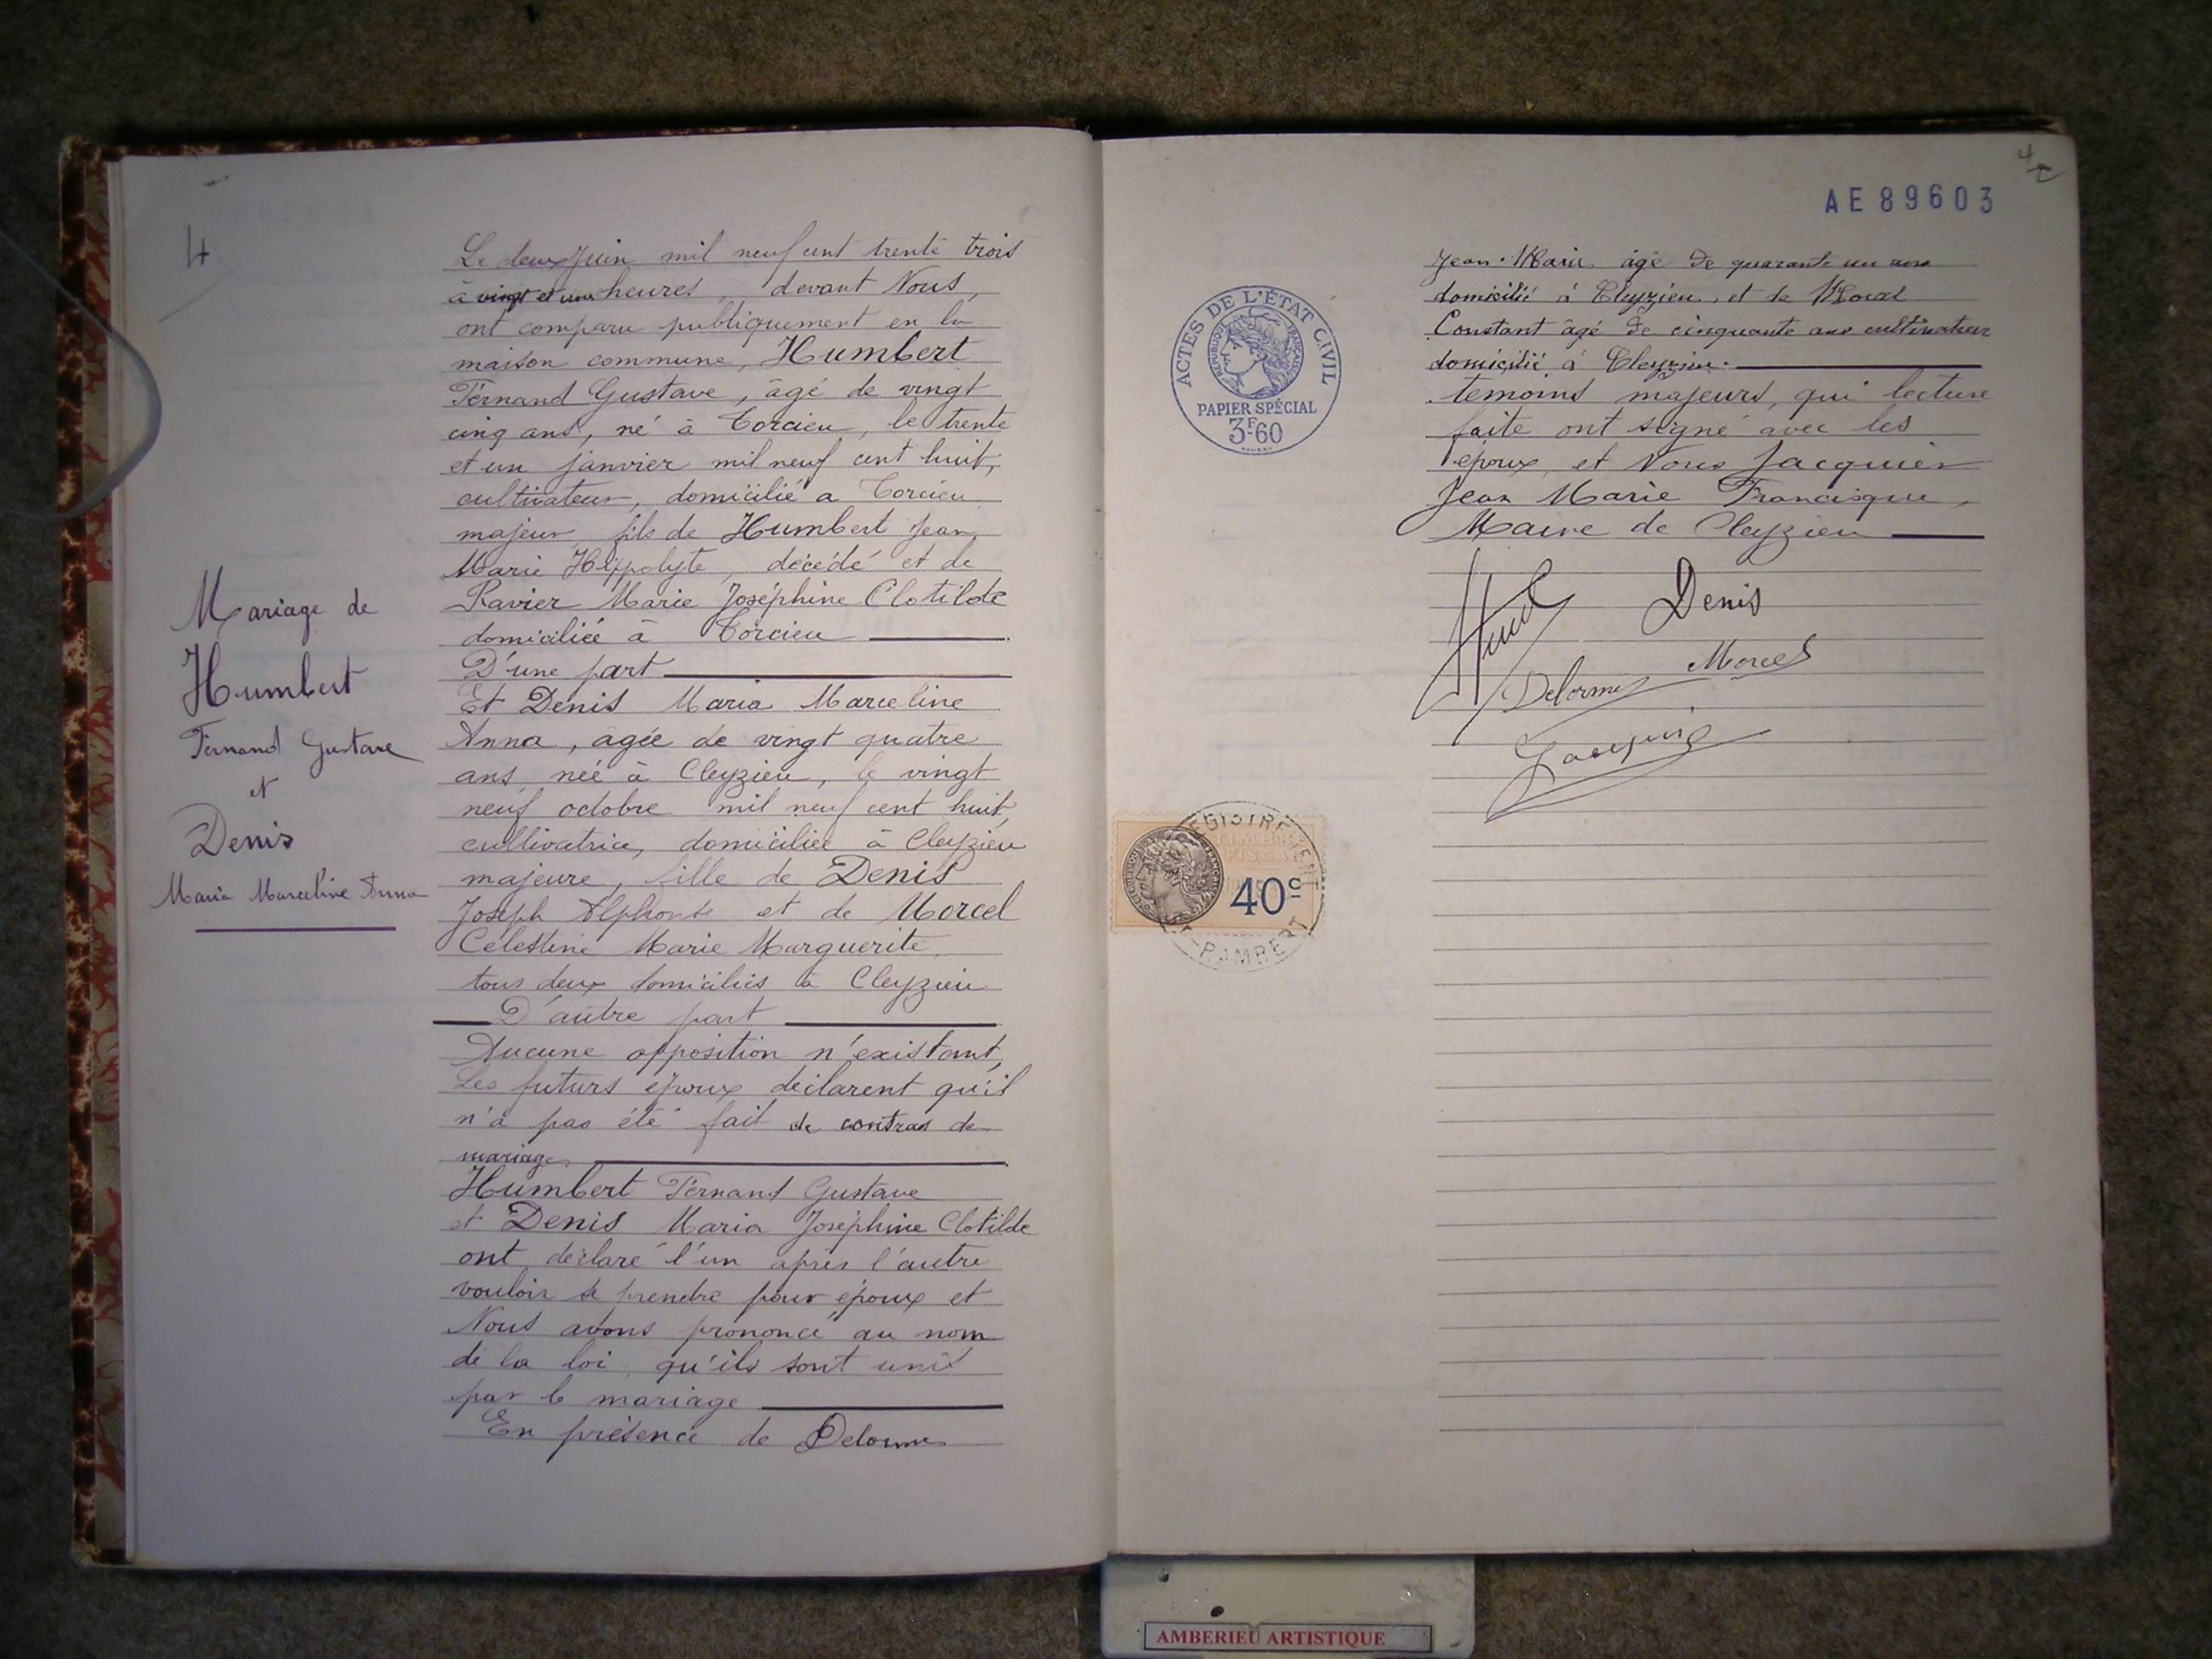 4
Mariage de
Humbert
Fernand Gustave
et
Denis
Maria Marceline Anna
Le deux Juin mil neuf cent trente trois
à vingt et une heures, devant Nous,
ont comparu publiquement en la
maison commune, Humbert
Fernand Gustave, âgé de vingt
cinq ans, né à Torcieu, le trente
et un janvier mil neuf cent huit,
cultivateur, domicilié a Torcieu
majeur, fils de Humbert Jean
Marie Hippolyte, décédé et de
Ravier Marie Joséphine Clotilde
domiciliée à Torcieu
D'une part
Et Denis Maria Marceline
Anna, agée de vingt quatre
ans, née à Cleyzieu, le vingt
neuf octobre mil neuf cent huit,
cultivatrice, domiciliée à Cleyzieu
majeure, fille de Denis
Joseph Alphonse et de Morcel
Célestine Marie Marguerite,
tous deux domiciliés à Cleyzieu
D'autre part
Aucune opposition n'existant,
Les futurs époux déclarent qu'il
n'a pas été fait de contrat de
mariage.
Humbert Fernand Gustave
et Denis Maria Joséphine Clotilde
ont déclaré l'un après l'autre
vouloir se prendre pour époux et
Nous avons prononcé au nom
de la loi, qu'ils sont unis
par le mariage
En présence de Delorme
AE 89603
Jean-Marie âgé de quarante un ans
domicilié à Cleyzieu, et de Morcel
Constant âgé de cinquante ans cultivateur
domicilié à Cleyzieu.
temoins majeurs, qui lecture
faite ont signé avec les
époux, et Nous Jacquier
Jean Marie Francisque,
Maire de Cleyzieu
Denis
Delorme Morcel
Jacquier
ACTES DE L'ÉTAT CIVIL
RÉPUBLIQUE FRANÇAISE
PAPIER SPÉCIAL
3F60
TIMBRE
FISCAL
40c
RAMBERT
AMBERIEU ARTISTIQUE